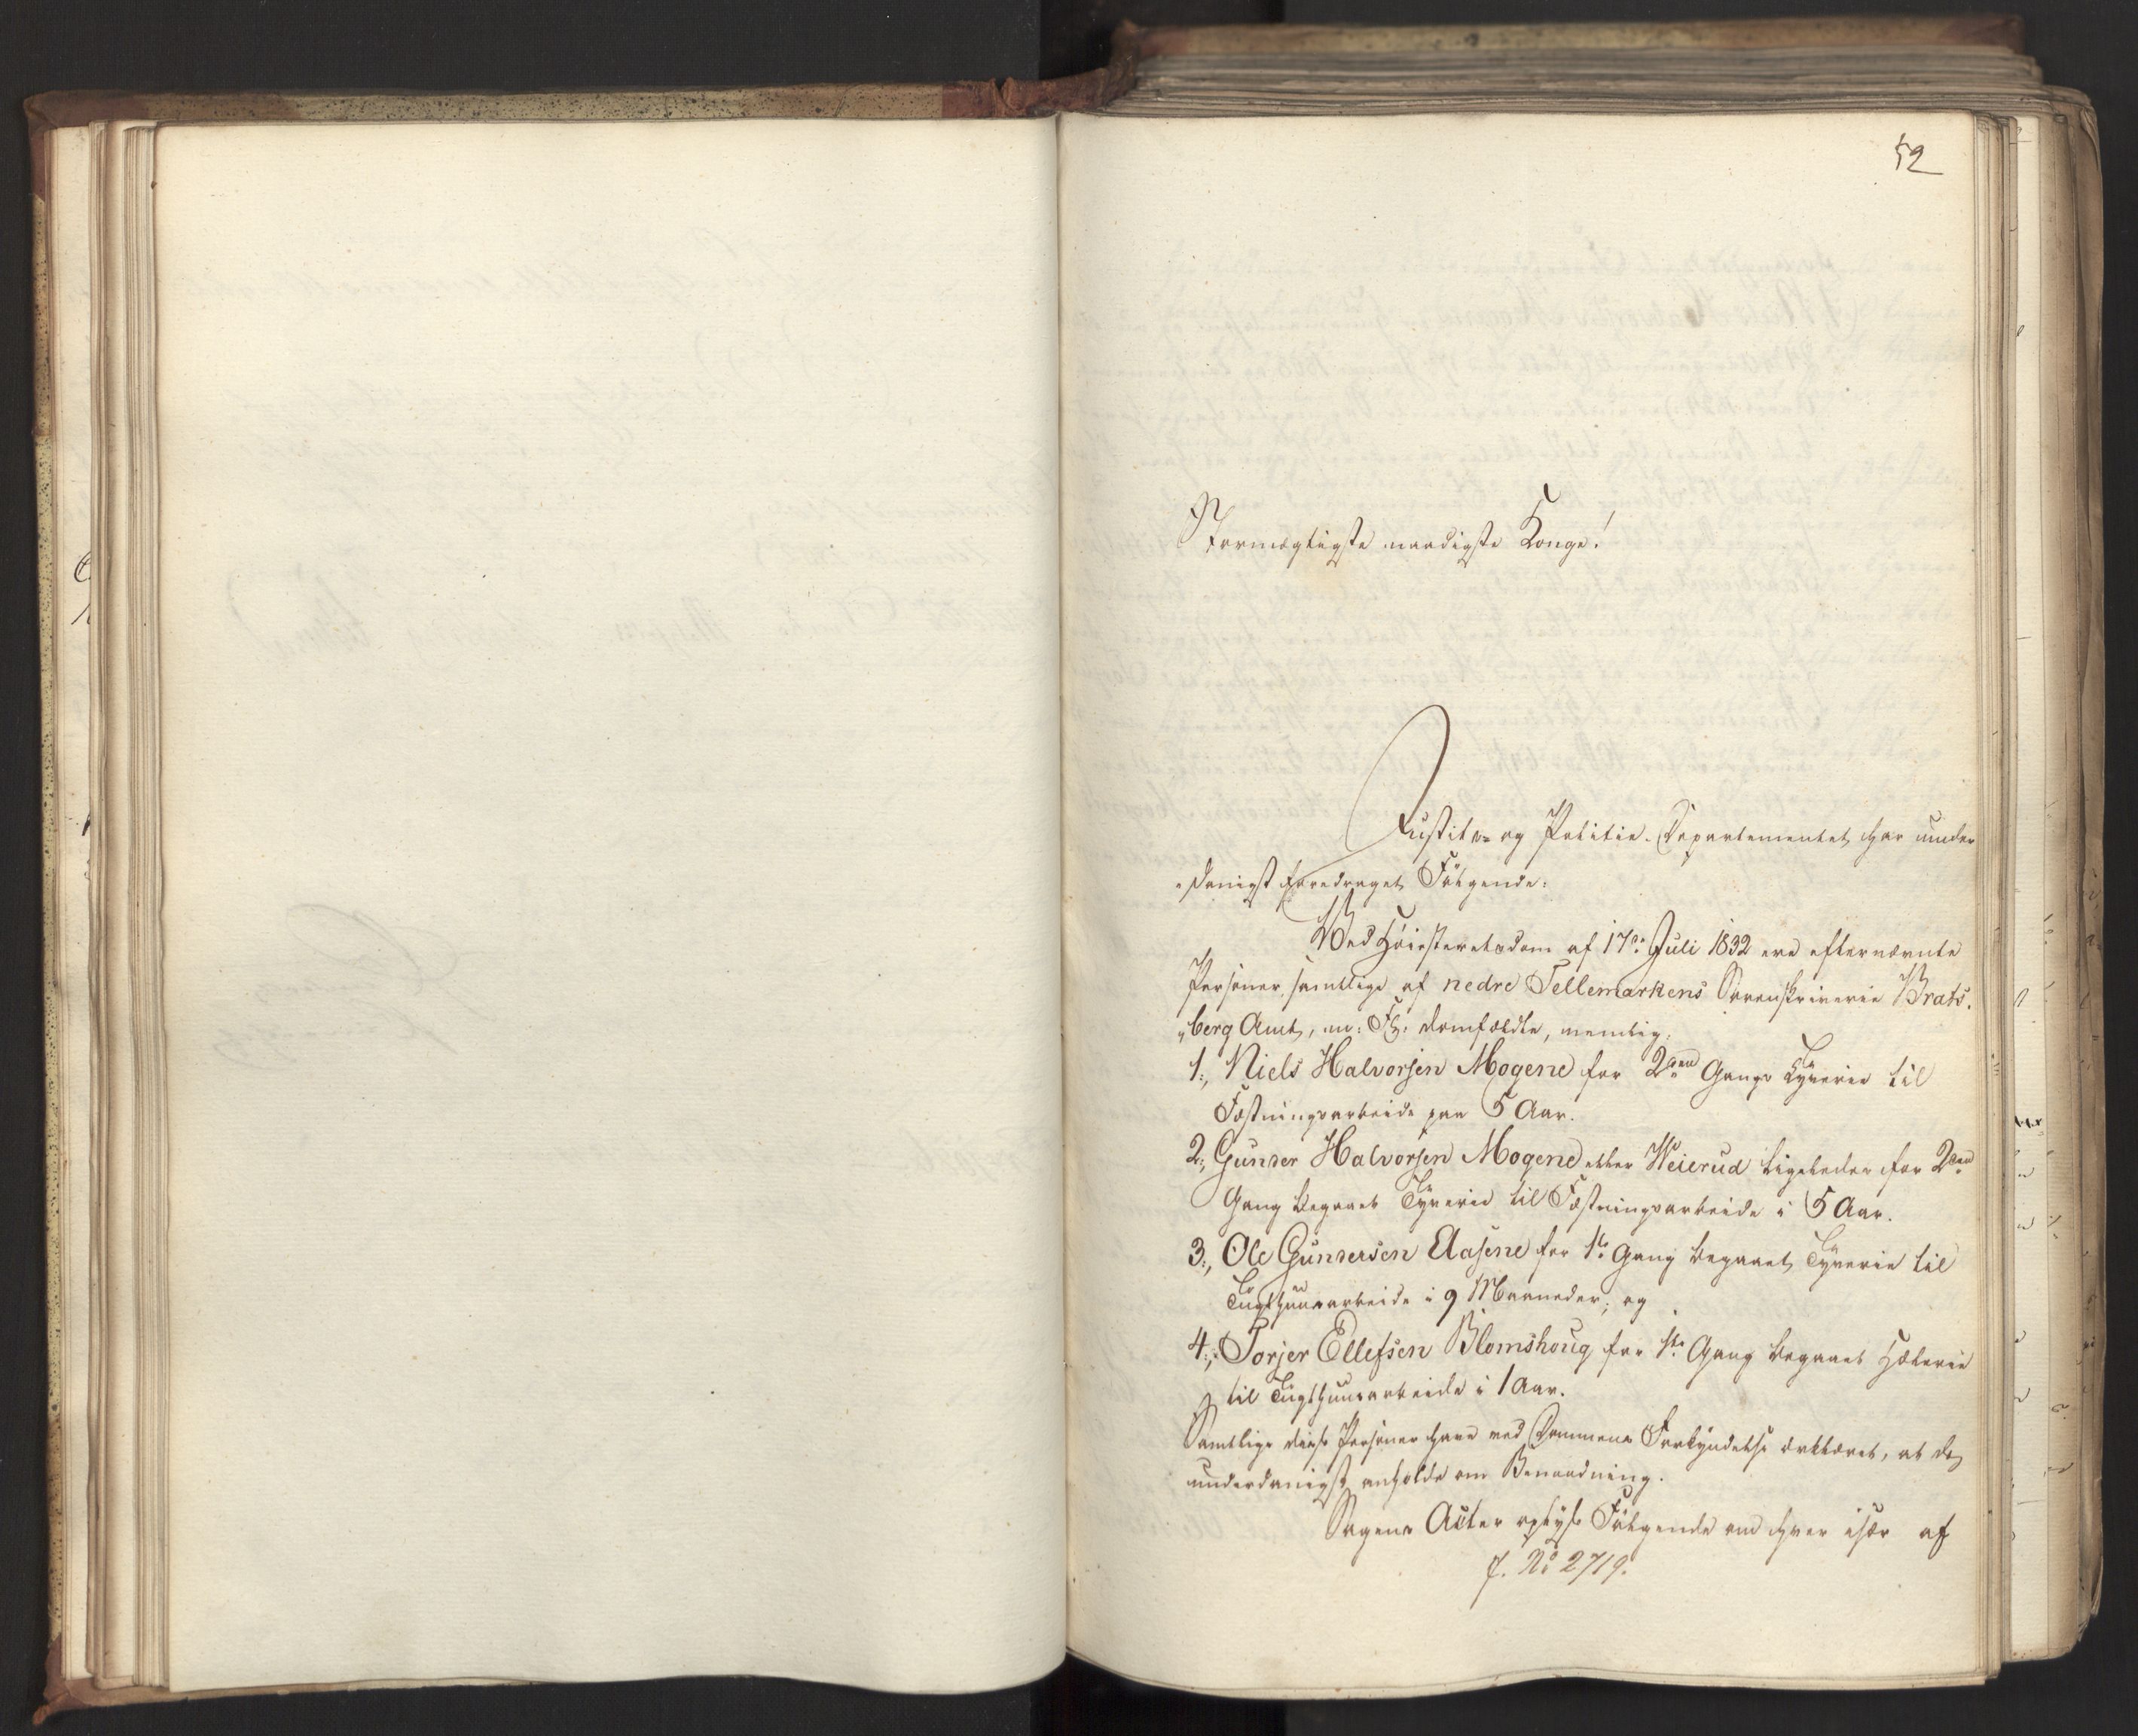 52
Stormægtigste naadigste Konge!
Justits- og Politie-Departementet har under
"danigst foredraget Følgende:
Ved Høiesteretsdom af 17de Juli 1832 ere efternævnte
Personer, samtlige af nedre Tellemarkens Sorenskriverie Brats-
"berg Amt, m: Fl: domfældte, nemlig:
1., Niels Halvorsen Mogene for 2den Gangs Tyverie til
Fæstningsarbeide paa 5 Aar.
2., Gunder Halvorsen Mogene eller Weierud ligeledes for 2den
Gang begaaet Tyverie til Fæstningsarbeide i 5 Aar.
3., Ole Gundersen Aasene for 1ste Gang begaaet Tyverie til
Tugthuusarbeide i 9 Maaneder; og
4., Torjer Ellefsen Blomshoug for 1ste Gang begaaet Hæleri
til Tugthuusarbeide i 1 Aar.
Samtlige disse Personer have ved Dommens Forkyndelse erklæret, at de
underdanigst anholde om Benaadning.
Sagens Acter oplyse Følgende om hver især af
J. No 2719.